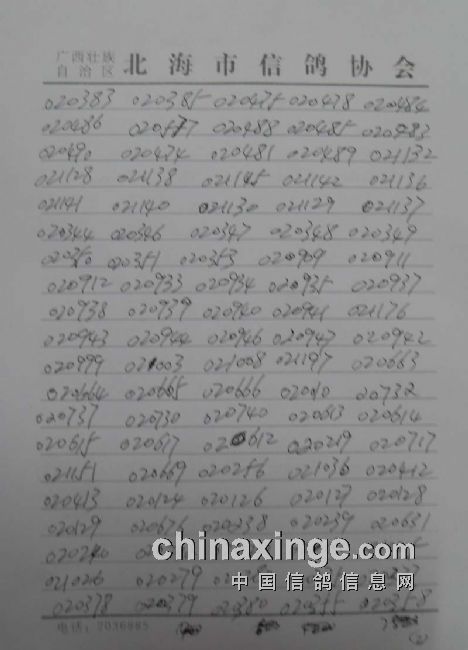 广西壮族
自治区
北海市信鸽协会
020383 020385 020475 020478 020484
020486 020577 020488 020485 020483
020490 020474 020481 020489 021132
021128 021138 021145 021142 021136
021141 021140 021130 021129 021137
020344 020346 020347 020348 020349
020350 020351 020353 020909 020911
020912 020933 020934 020935 020937
020938 020939 020940 020941 021176
020943 020944 020946 020947 020942
020999 021003 021008 021197 020663
020664 020665 020666 020732
020737 020730 020740 020613 020614
020615 020617 020612 020219 020717
021151 020669 020256 021036 020412
020413 020124 020126 020127 020128
020129 020676 020238 020239 020631
020240
chinaxinge.com
021026 020279
中国信鸽信息网
020378 020379 020380 020355 020358
电话：2036885
(2)